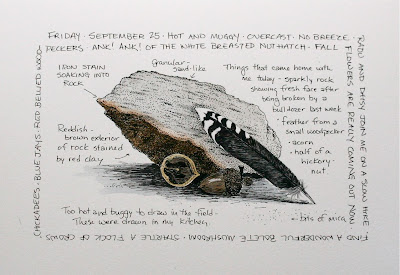 FRIDAY · SEPTEMBER 25 · HOT AND MUGGY · OVERCAST · NO BREEZE ·
RADU AND DAISY JOIN ME ON A SLOW HIKE
FLOWERS ARE REALLY COMING OUT NOW
FIND A WONDERFUL BOLETE MUSHROOM · STARTLE A FLOCK OF CROWS
CHICKADEES · BLUE JAYS · RED BELLIED WOOD-
PECKERS ANK! ANK! OF THE WHITE BREASTED NUTHATCH · FALL
IRON STAIN
SOAKING INTO
ROCK
granular-
sand-like
Things that came home with
me today - sparkly rock
showing fresh face after
being broken by a
bulldozer last week
· feather from a
small woodpecker
· acorn
· half of a
hickory
nut
Reddish-
brown exterior
of rock stained
by red clay
Too hot and buggy to draw in the field.
These were drawn in my kitchen.
· bits of mica